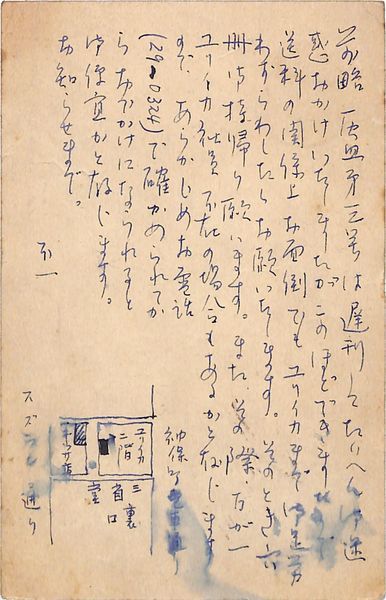 前略 第三号は遅刊してたいへん御迷
惑おかけいたしましたがこのほどできました
送料の関係上お面倒でもユリイカまで御足労
わずらわしたくお願いいたします。そのとき
御持帰り願います。また、その際、万が一
ユリイカ社員不在の場合もあるかと存じます
ので、あらかじめお電話
(29-0324)で確かめられてか
らおでかけになられると
御便宜かと存じます。
お知らせまで。
不一
神保町
ユリイカ
二階
三省堂
裏口
スズラン通り